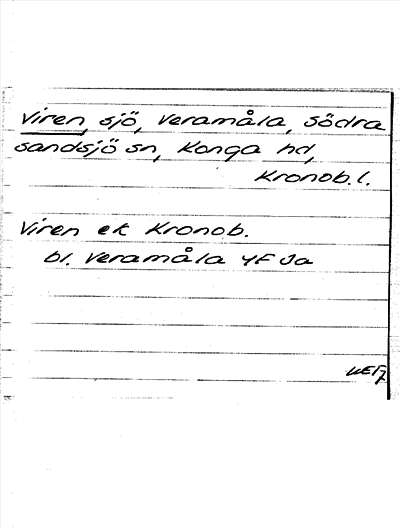 Viren, sjö, Veramåla, Södra
Sandsjö sn, Konga hd,
Kronob. l.
Viren ek Kronob.
bl. Veramåla 4F Ja